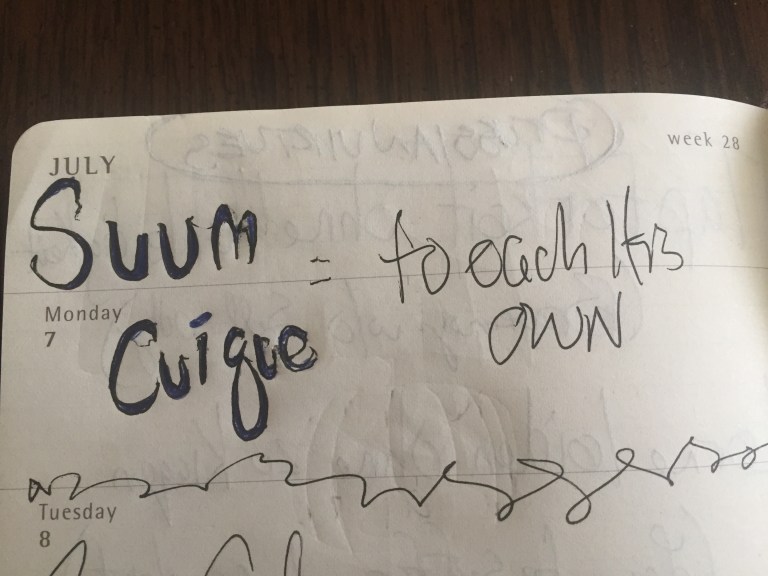 week 28
JULY
Suum = to each HIS
Monday
7
Cuique OWN
Tuesday
8